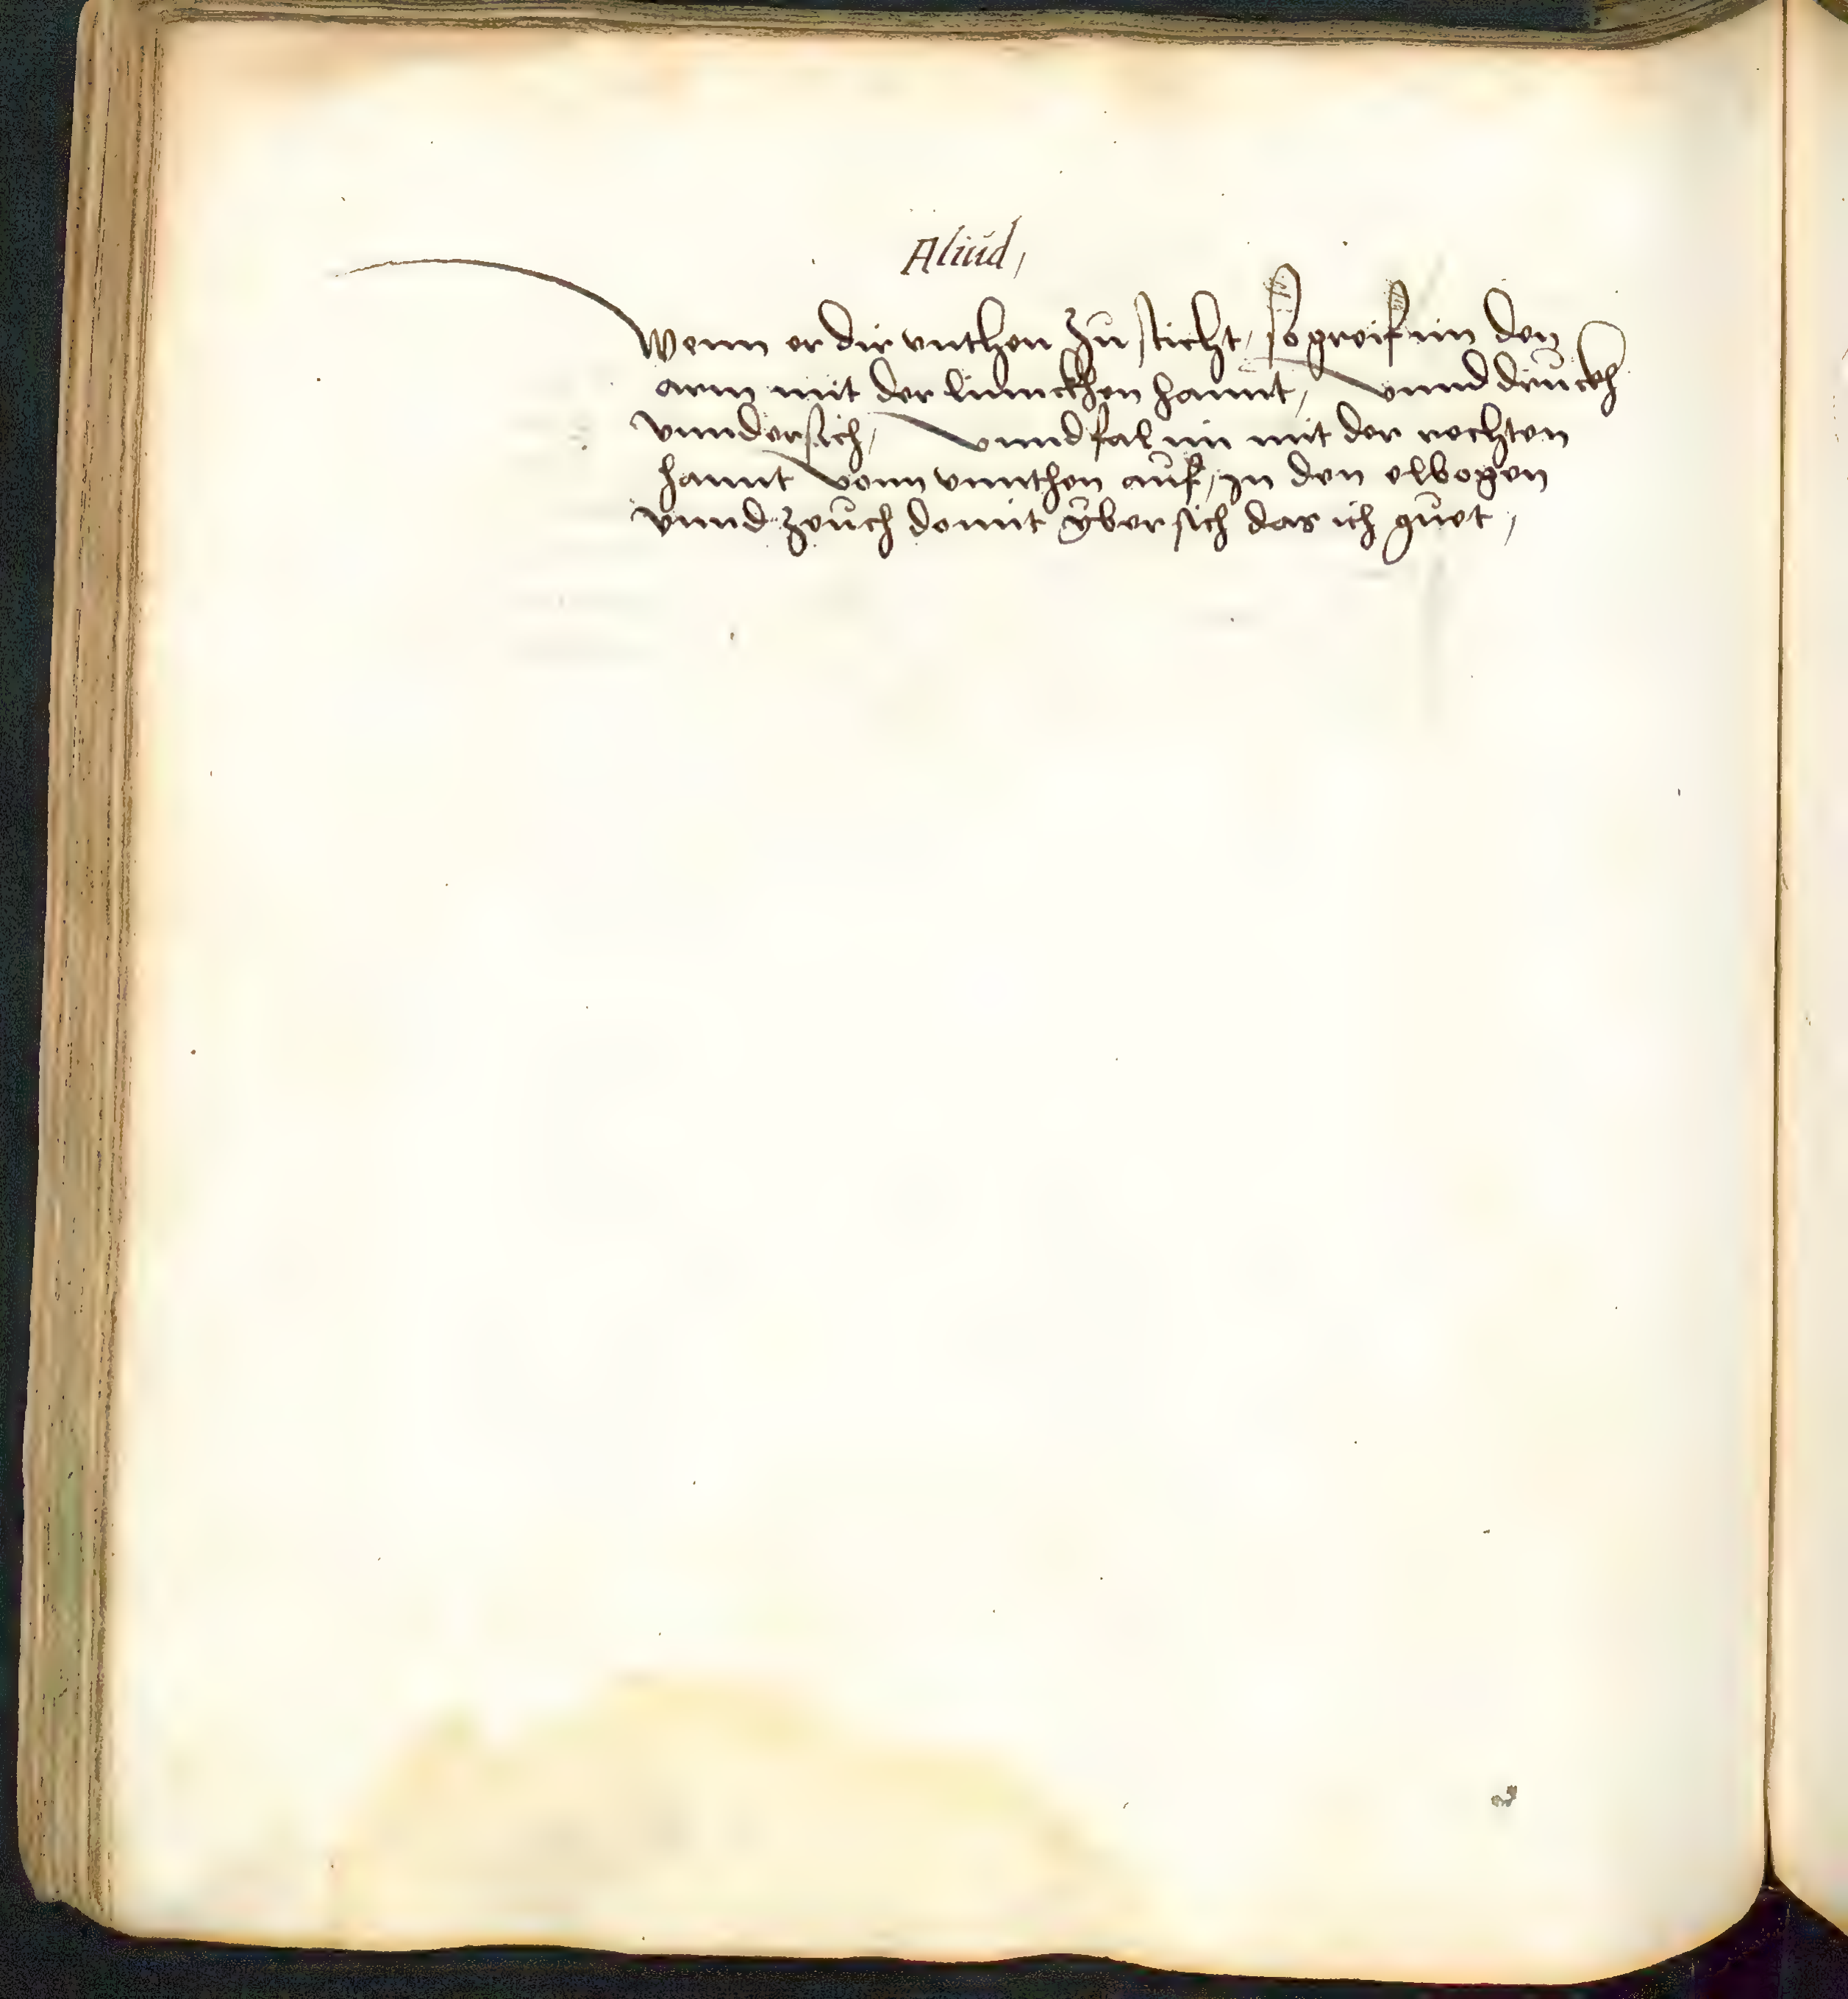 Aliud,
Wenn er dir vnthen zu sticht, so greif im den
arm mit der linnckhen hannt, vnnd druckh
vnndersich, vnnd fal im mit der rechten
hannt vonn vnnthen auf, in den elbogen
vnnd zeuch domit vber sich das ich guet,